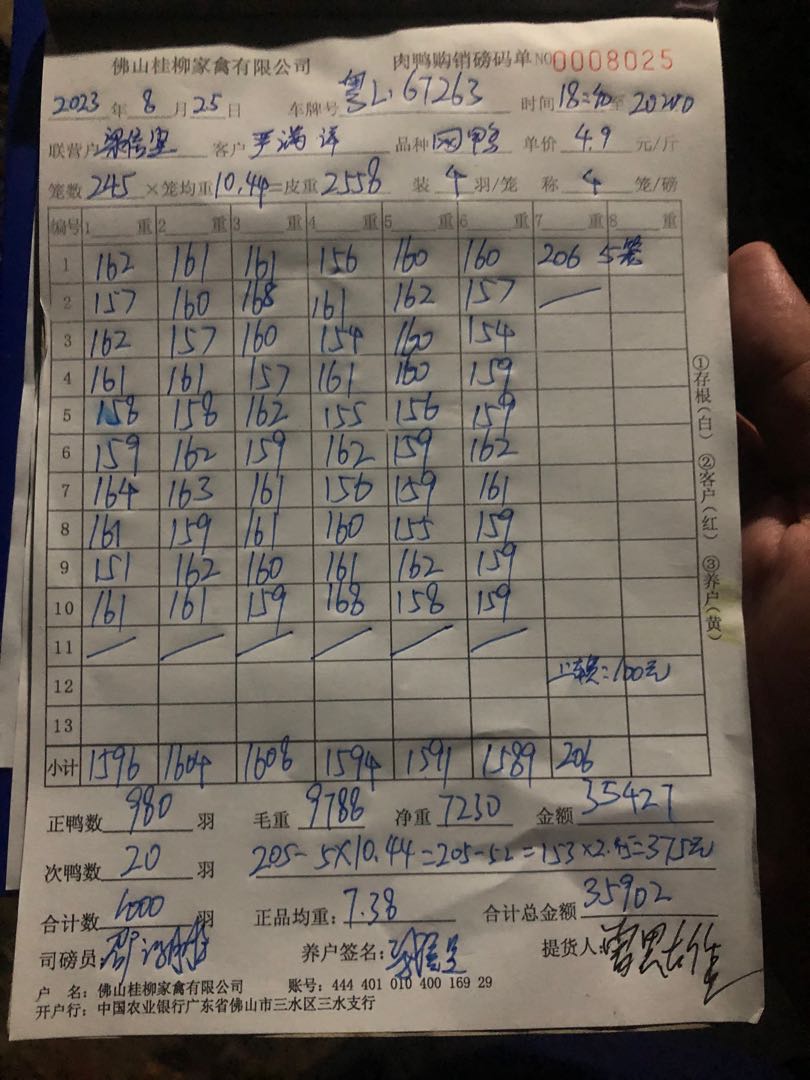 佛山桂柳家禽有限公司 肉鸭购销磅码单 NO0008025
2023年8月25日 车牌号 粤L·67263 时间 18:40至20:40
联营户 客户 严满 品种 鸭 单价 4.9 元/斤
笼数245×笼均重10.44=皮重2558 装4羽/笼 称4笼/磅
编号 1 重 2 重 3 重 4 重 5 重 6 重 7 重 8 重
1 162 161 161 156 160 160 206 5笼
2 157 160 168 161 162 157 —
3 162 157 160 154 160 154
4 161 161 157 161 160 159
5 158 158 162 155 156 159
6 159 162 159 162 159 162
7 164 163 161 156 159 161
8 161 159 161 160 155 159
9 151 162 160 161 162 159
10 161 161 159 168 158 159
11 — — — — — —
12 上车费:100元
13
小计 1596 1604 1608 1594 1591 1589 206
正鸭数 980 羽 毛重 9788 净重 7230 金额 35427
次鸭数 20 羽 205-5×10.44=205-52=153×2.45=375元
合计数 1000 羽 正品均重:7.38 合计总金额 35902
司磅员: 养户签名: 提货人:
户 名:佛山桂柳家禽有限公司 账号:444 401 010 400 169 29
开户行:中国农业银行广东省佛山市三水区三水支行
①存根(白) ②客户(红) ③养户(黄)